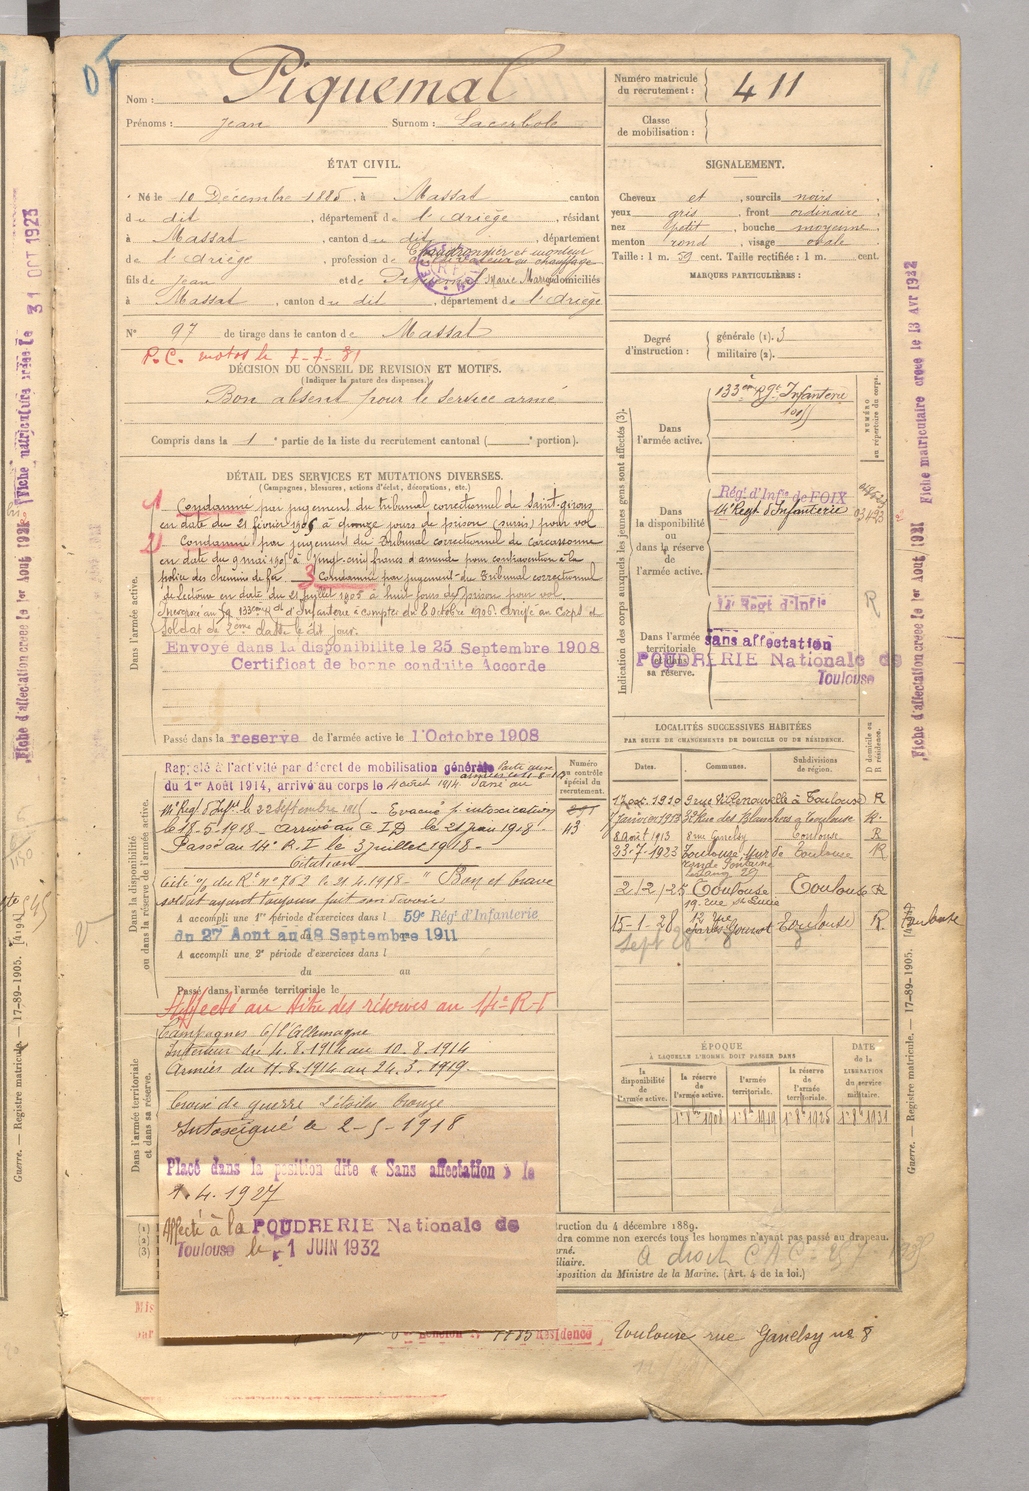 Nom : Piquemal
Prénoms : Jean Surnom : Lacerbole
Numéro matricule du recrutement : 411
Classe de mobilisation :
ÉTAT CIVIL.
Né le 10 Décembre 1885, à Massat canton
du dit, département de l'Ariège, résidant
à Massat, canton du dit, département
de l'Ariège, profession de
fils de Jean et de Piquemal Marie domiciliés
à Massat, canton du dit, département de l'Ariège
N° 97 de tirage dans le canton de Massat
P.C. motos le
DÉCISION DU CONSEIL DE REVISION ET MOTIFS.
(Indiquer la nature des dispenses.)
Bon absent pour le service armé
Compris dans la 1e partie de la liste du recrutement cantonal ( e portion).
SIGNALEMENT.
Cheveux et , sourcils noirs
yeux gris , front ordinaire
nez petit , bouche moyenne
menton rond , visage ovale
Taille : 1 m. 59 cent. Taille rectifiée : 1 m. cent.
MARQUES PARTICULIÈRES :
Degré d'instruction : générale (1). 3
militaire (2).
DÉTAIL DES SERVICES ET MUTATIONS DIVERSES.
(Campagnes, blessures, actions d'éclat, décorations, etc.)
Dans l'armée active.
1 Condamné par jugement du tribunal correctionnel de Saint-girons
en date du 21 février 1905 à quinze jours de prison (sursis) pour vol
2 Condamné par jugement du Tribunal correctionnel de Carcassonne
en date du 9 mai 1905 à vingt-cinq francs d'amende pour contravention à la
police des chemins de fer. 3 Condamné par jugement du Tribunal correctionnel
de Lectoure en date du 21 juillet 1905 à huit jours de prison pour vol.
Incorporé au 133ème Rgt d'Infanterie à compter du 8 octobre 1906. Arrivé au Corps et
soldat de 2ème classe le dit jour.
Envoyé dans la disponibilite le 25 Septembre 1908
Certificat de bonne conduite Accorde
Passé dans la reserve de l'armée active le 1 Octobre 1908
Dans la disponibilité ou dans la réserve de l'armée active.
Rappelé à l'activité par décret de mobilisation générale
du 1er Août 1914, arrivé au corps le 4 août 1914. Passé au
14e Reg. d'Inft le 22 septembre 1915 - Evacué p. intoxication
le 18-5-1918 - Arrivé au C I D le 21 juin 1918 -
Passé au 14e R.I. le 3 juillet 1918 -
Citation
Cité % du Rt n° 762 le 21.4.1918 - " Bon et brave
soldat ayant toujours fait son devoir
A accompli une 1re période d'exercices dans l 59e Régt d'Infanterie
du 27 Aout au 18 Septembre 1911
A accompli une 2e période d'exercices dans l
du au
Passé dans l'armée territoriale le
Affecté au titre des réserves au 14e R-I
Numéro au contrôle spécial du recrutement.
43
Dans l'armée territoriale et dans sa réserve.
Campagnes C/ l'Allemagne
Intérieur du 4.8.1914 au 10.8.1914
Armées du 11.8.1914 au 24.3.1919.
Croix de guerre 2 étoiles bronze
Intoxiqué le 2-5-1918
Placé dans la position dite « Sans affectation » le
1.4.1927
Affecté à la POUDRERIE Nationale de
Toulouse le -1 JUIN 1932
Indication des corps auxquels les jeunes gens sont affectés (3).
NUMÉRO au répertoire du corps.
Dans l'armée active.
133ème Rgt Infanterie
Dans la disponibilité ou dans la réserve de l'armée active.
Régt d'Infie de FOIX
14e Regt d'Infanterie
Dans l'armée territoriale et dans sa réserve.
14e Regt d'Infie
sans affectation
POUDRERIE Nationale de
Toulouse
R
LOCALITÉS SUCCESSIVES HABITÉES
PAR SUITE DE CHANGEMENTS DE DOMICILE OU DE RÉSIDENCE.
Dates. Communes. Subdivisions de région. D domicile ou R résidence.
8 Août 1913 8 rue Ganelsy Toulouse R
23-7-1923 Toulouse Toulouse R
2/2/25 Toulouse Toulouse R
19. rue Ste Lucie
15-1-28 Toulouse R Toulouse
Sept 28
ÉPOQUE
À LAQUELLE L'HOMME DOIT PASSER DANS
la disponibilité de l'armée active. la réserve de l'armée active. l'armée territoriale. la réserve de l'armée territoriale. DATE de la LIBÉRATION du service militaire.
truction du 4 décembre 1889.
dra comme non exercés tous les hommes n'ayant pas passé au drapeau.
rné.
iliaire.
isposition du Ministre de la Marine. (Art. 4 de la loi.)
(1)
(2)
(3)
Mis
par
Résidence Toulouse rue Ganelsy no 8
Fiche matriculaire créée le 13 Avr 1932
Fiche d'affectation créée le 1er Août 1921
Guerre. — Registre matricule. — 17-89-1905.
Fiche matriculaire créée le 31 OCT 1923
Fiche d'affectation créée le 1er Août 192
Guerre. — Registre matricule. — 17-89-1905. [419]